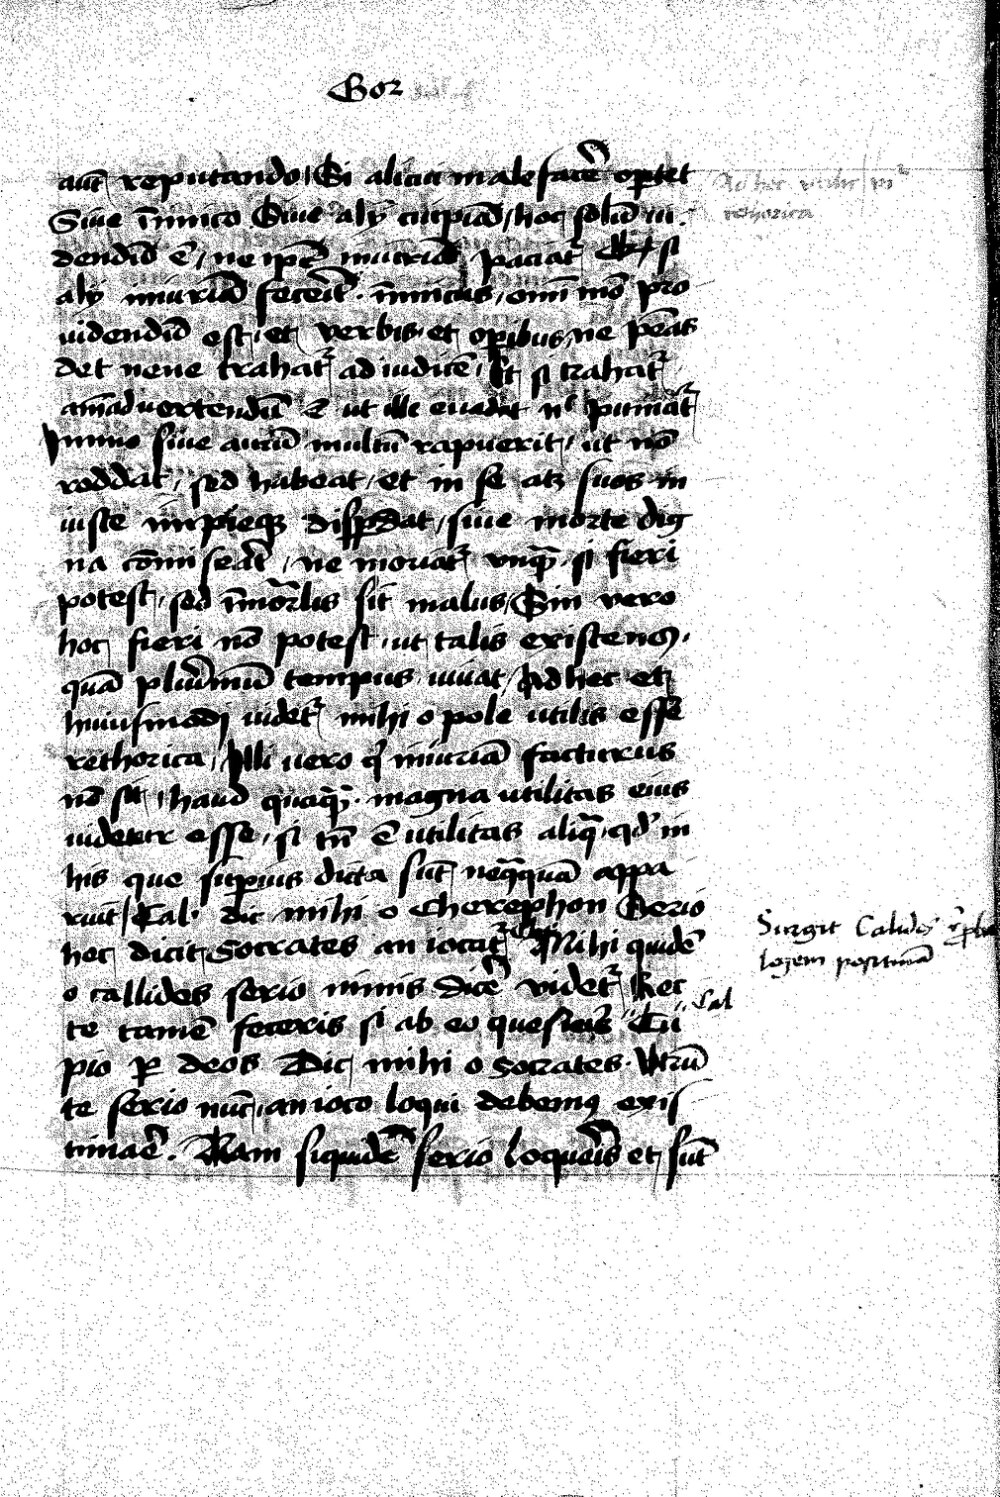 Gor
aut̄ reputando / Si alicui male facer̄ oportet
Siue īnimico Siue alij cuipiā / hoc solū ui
dendū ē / ne ipē iniuriā paciat᷑ Et si
alij iniuriā fecerit · īnimicus, om̄i mō pro
uidendū est, et verbis et operibus, ne penas
det neue trahat᷑ ad iudicē, Et si trahat᷑
animaduertendū ē ut ille euadat nec puniat᷑
Immo siue aurū multū rapuerit, ut nō
reddat, sed habeat, et in se atqꝫ suos in
iuste impieqꝫ dispēdat, siue morte dig
na cōmiserit, ne moriat᷑ vnqꝫ̄, si fieri
potest, sed īmortalis sit malus, Sin vero
hoc fieri nō potest, ut talis existens,
quā plurimū tempus uiuat, Ad hec et
huiusmodi uidet᷑ mihi o pole utilis esse
rethorica, Illi uero qui iniuriā facturus
nō sit, haud quaqꝫ̄ · magna utilitas eius
uidetur esse, si tn̄ ē utilitas aliqua, qd' in
his que superius dicta sut̄ neqꝗquā appa
ruit / Cal · dic mihi o Cherephon Serio
hec dicit Socrates an iocat᷑ Che Mihi quidē
o callides serio nimis dicer̄ videt᷑ Hec
te tamē feceris si ab eo quesieris Cal Cu
pio per deos Dic mihi o Socrates · Vtrū
te serio nūc, an ioco loqui debemus exis
timar̄e. Nam siquidē serio loqueris et sut̄
Ad hec utilis
rethorica
Surgit Calides
logem